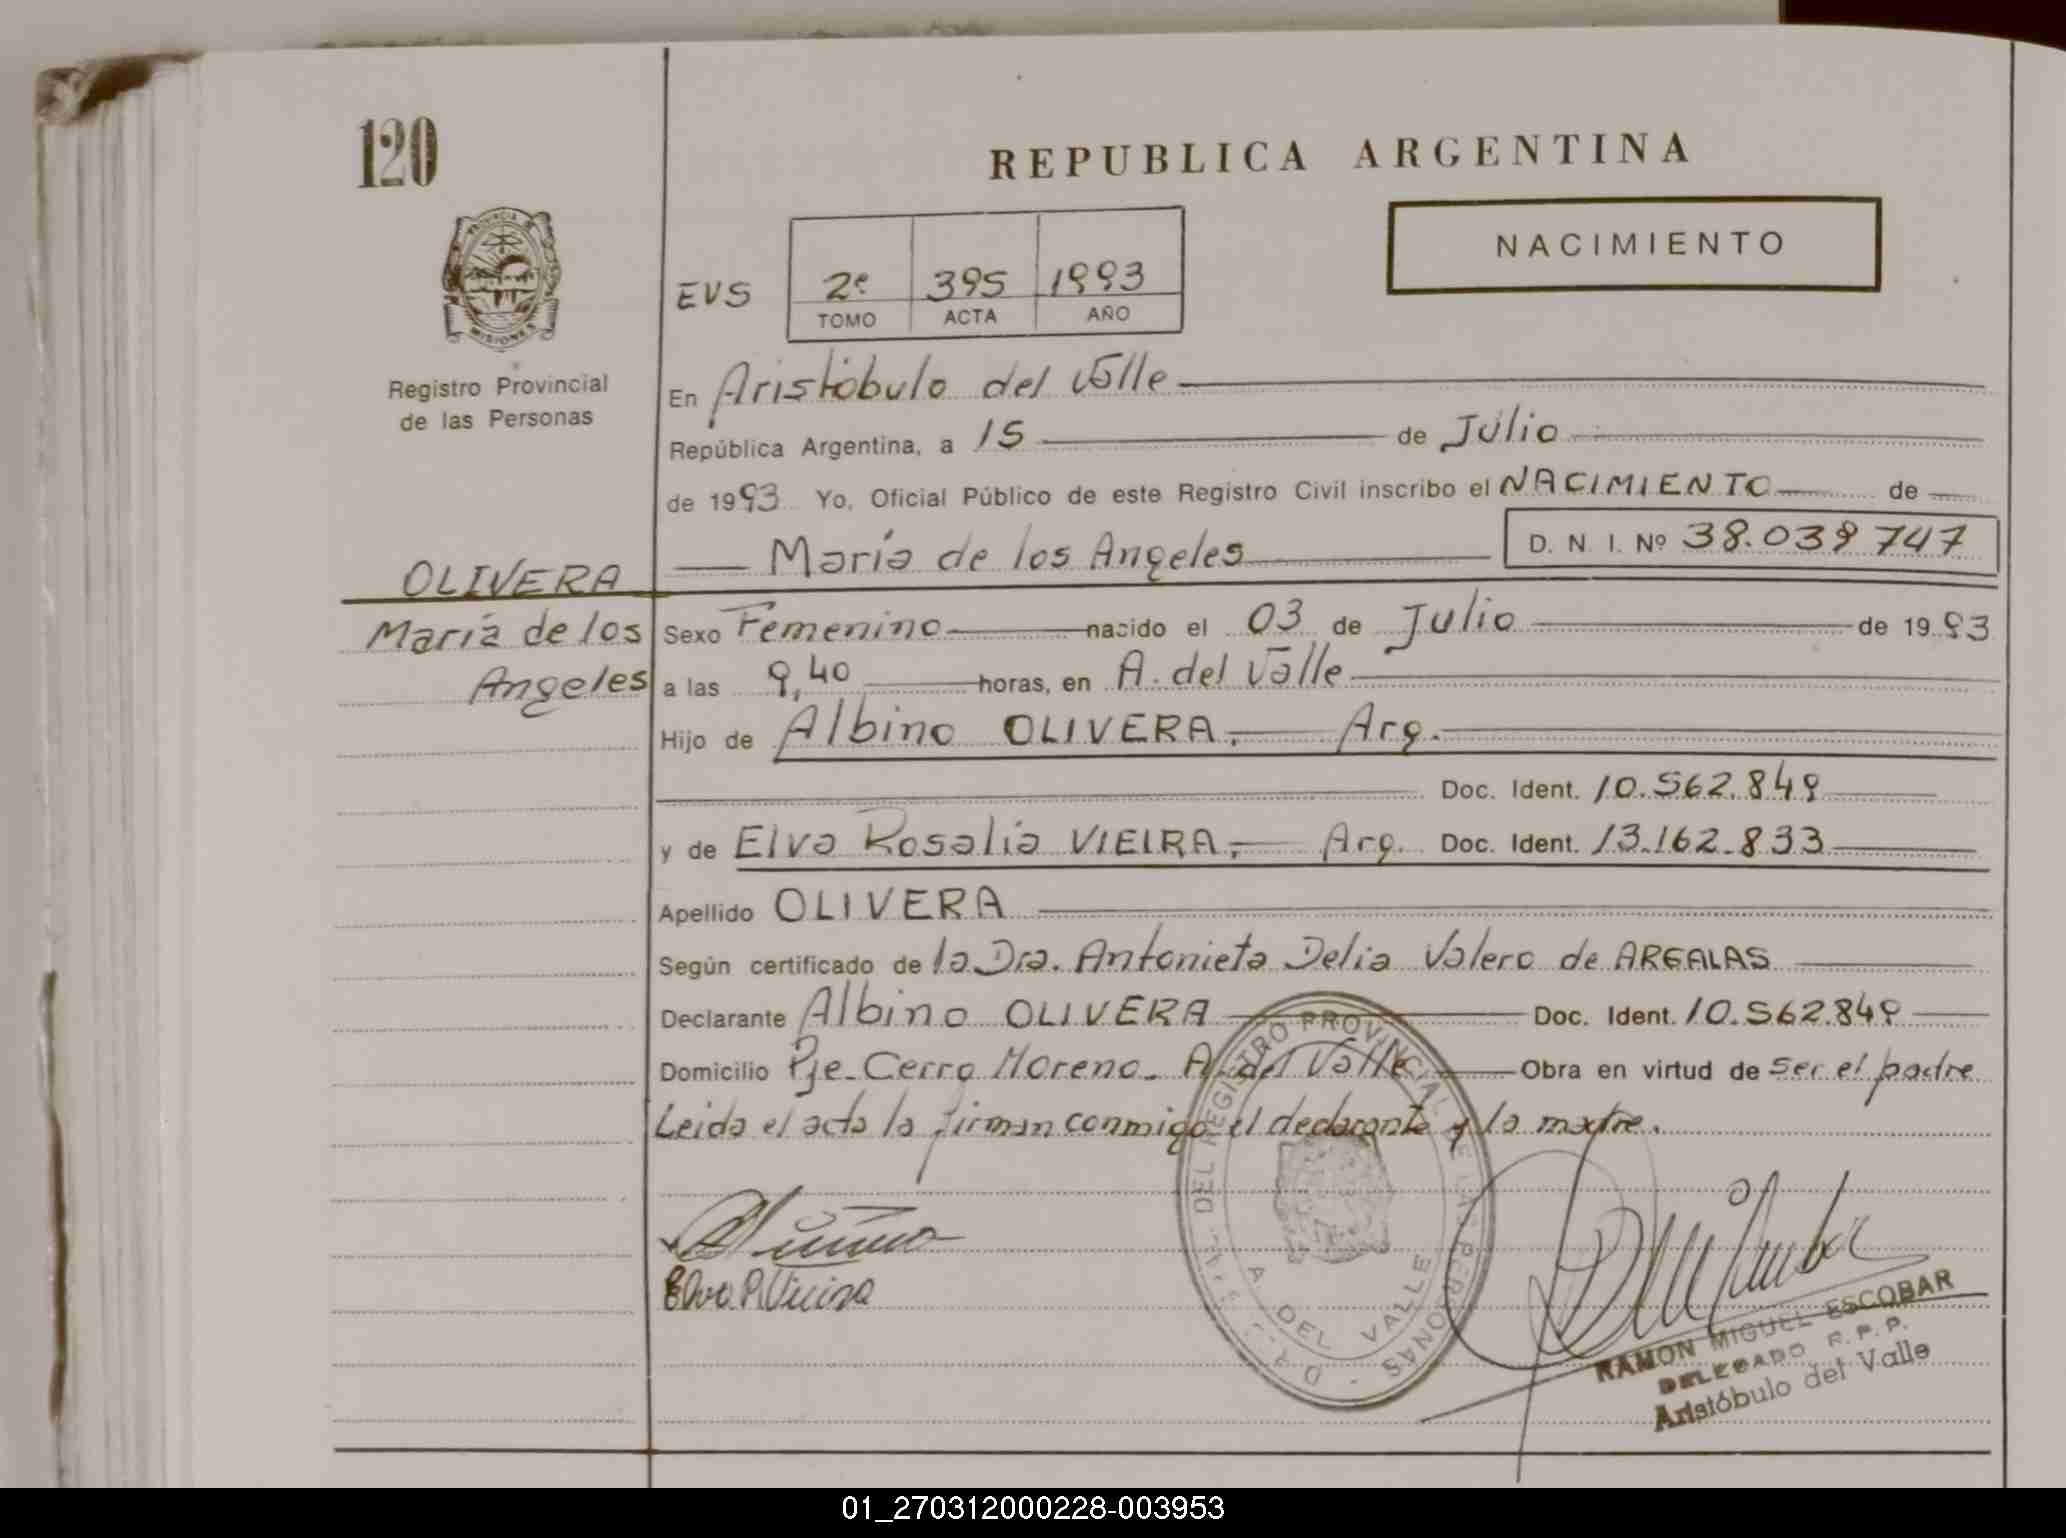 120
REPUBLICA ARGENTINA
NACIMIENTO
PROVINCIA DE
MISIONES
Registro Provincial
de las Personas
EVS 2º 395 1993
TOMO ACTA AÑO
En Aristóbulo del Valle
República Argentina, a 15 de Julio
de 1993 Yo, Oficial Público de este Registro Civil inscribo el NACIMIENTO de
María de los Angeles D. N. I. Nº 38.039 747
OLIVERA
María de los
Angeles
Sexo Femenino nacido el 03 de Julio de 1993
a las 9,40 horas, en A. del Valle
Hijo de Albino OLIVERA. Arg.
Doc. Ident. 10.562.849
y de Elva Rosalia VIEIRA. Arg. Doc. Ident. 13.162.833
Apellido OLIVERA
Según certificado de la Dra. Antonieta Delia Valero de ARGALAS
Declarante Albino OLIVERA Doc. Ident. 10.562.849
Domicilio Pje. Cerro Moreno. A. del Valle Obra en virtud de ser el padre
Leida el acta la firman conmigo el declarante y la madre.
DEL REGISTRO PROVINCIAL DE LAS PERSONAS
A DEL VALLE
Elva R Vieira
RAMON MIGUEL ESCOBAR
DELEGADO R. P. P.
Aristóbulo del Valle
01_270312000228-003953